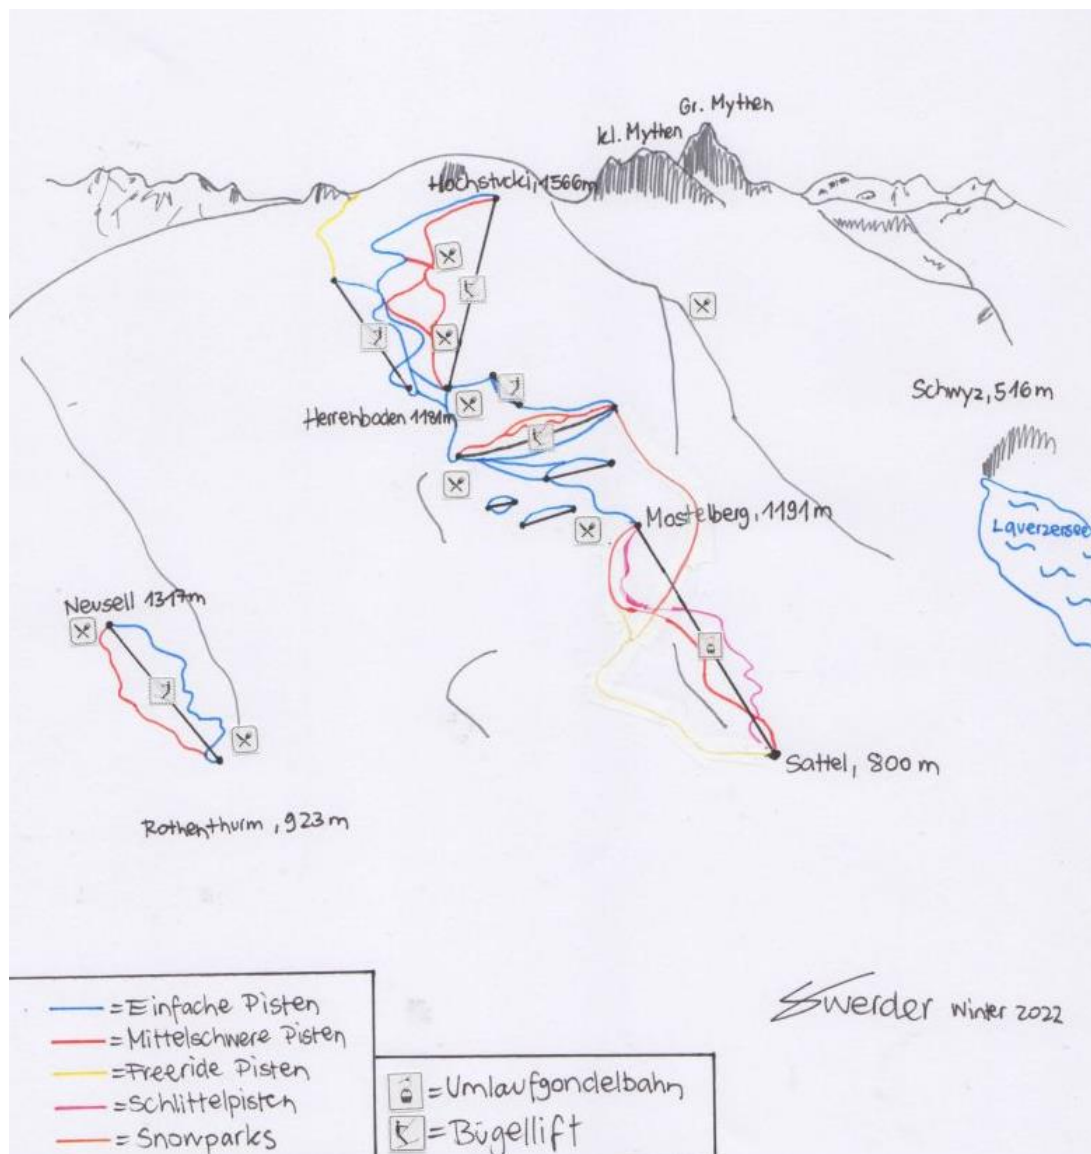 Gr. Mythen
kl. Mythen
Hochstucki, 1566m
Schwyz, 516m
Herrenboden 1181m
Mostelberg, 1191m
Lauerzersee
Neusell 1317m
Sattel, 800m
Rothenthurm, 923m
= Einfache Pisten
= Mittelschwere Pisten
= Freeride Pisten
= Schlittelpisten
= Snowparks
= Umlaufgondelbahn
= Bügellift
Swerder Winter 2022